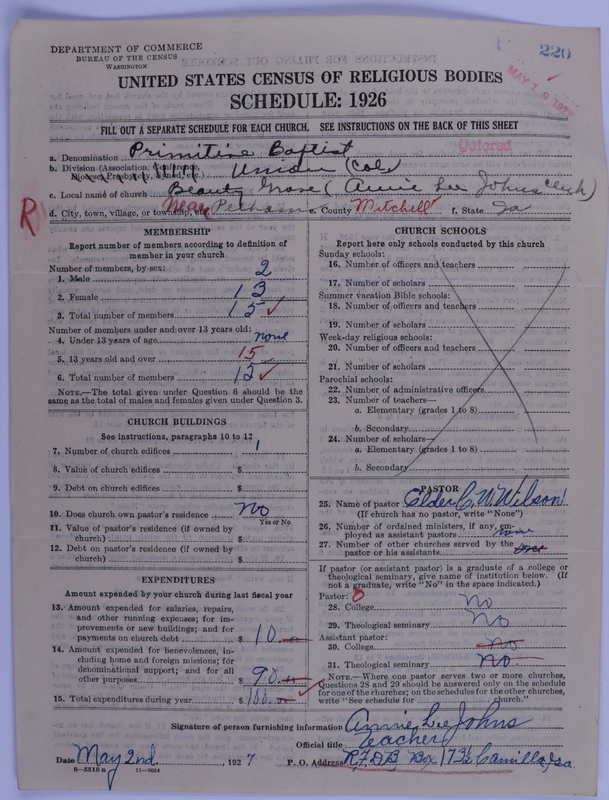 DEPARTMENT OF COMMERCE
BUREAU OF THE CENSUS
WASHINGTON
220
UNITED STATES CENSUS OF RELIGIOUS BODIES
SCHEDULE: 1926
FILL OUT A SEPARATE SCHEDULE FOR EACH CHURCH. SEE INSTRUCTIONS ON THE BACK OF THIS SHEET
Colored
a. Denomination Primitive Baptist
b. Division (Association, Union (Col)
c. Local name of church Beauty Grose (Annie Lee Johns clerk)
R d. City, town, village, or township, etc. Near Pelham e. County Mitchell f. State Ga
MEMBERSHIP
Report number of members according to definition of member in your church
Number of members, by sex:
1. Male 2
2. Female 13
3. Total number of members 15 ✓
Number of members under and over 13 years old:
4. Under 13 years of age none
5. 13 years old and over 15
6. Total number of members 15 ✓
NOTE.—The total given under Question 6 should be the same as the total of males and females given under Question 3.
CHURCH BUILDINGS
See instructions, paragraphs 10 to 12
7. Number of church edifices 1
8. Value of church edifices $
9. Debt on church edifices $
10. Does church own pastor's residence No
Yes or No
11. Value of pastor's residence (if owned by church) $
12. Debt on pastor's residence (if owned by church) $
EXPENDITURES
Amount expended by your church during last fiscal year
13. Amount expended for salaries, repairs,
and other running expenses; for im-
provements or new buildings; and for
payments on church debt $ 10
14. Amount expended for benevolences, in-
cluding home and foreign missions; for
denominational support; and for all
other purposes $ 90
15. Total expenditures during year $ 100 ✓
CHURCH SCHOOLS
Report here only schools conducted by this church
Sunday schools:
16. Number of officers and teachers
17. Number of scholars
Summer vacation Bible schools:
18. Number of officers and teachers
19. Number of scholars
Week-day religious schools:
20. Number of officers and teachers
21. Number of scholars
Parochial schools:
22. Number of administrative officers
23. Number of teachers—
a. Elementary (grades 1 to 8)
b. Secondary
24. Number of scholars—
a. Elementary (grades 1 to 8)
b. Secondary
PASTOR
25. Name of pastor Elder C. W. Wilson
(If church has no pastor, write "None")
26. Number of ordained ministers, if any, em-
ployed as assistant pastors none
27. Number of other churches served by the
pastor or his assistants
If pastor (or assistant pastor) is a graduate of a college or
theological seminary, give name of institution below. (If
not a graduate, write "No" in the space indicated.)
Pastor:
28. College No
29. Theological seminary No
Assistant pastor:
30. College No
31. Theological seminary No
NOTE.—Where one pastor serves two or more churches,
Questions 28 and 29 should be answered only on the schedule
for one of the churches; on the schedules for the other churches,
write "See schedule for church."
Signature of person furnishing information Annie Lee Johns
Official title Teacher
Date May 2nd, 1927 P. O. Address R.F.D. 3 Box 173 1/2 Camilla, Ga.
8—5518 a 11—8054